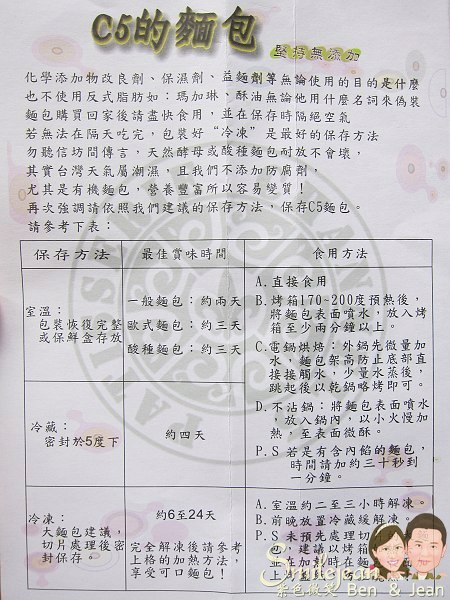 C5的麵包
堅持無添加
化學添加物改良劑、保濕劑、益麵劑等無論使用的目的是什麼
也不使用反式脂肪如：瑪加琳、酥油無論他用什麼名詞來偽裝
麵包購買回家後請盡快食用，並在保存時隔絕空氣
若無法在隔天吃完，包裝好“冷凍”是最好的保存方法
勿聽信坊間傳言，天然酵母或酸種麵包耐放不會壞，
其實台灣天氣屬潮濕，且我們不添加防腐劑，
尤其是有機麵包，營養豐富所以容易變質！
再次強調請依照我們建議的保存方法，保存C5麵包。
請參考下表：
保存方法
最佳賞味時間
食用方法
室溫：
包裝恢復完整
或保鮮盒存放
一般麵包：約兩天
歐式麵包：約三天
酸種麵包：約三天
A.直接食用
B.烤箱170~200度預熱後，
將麵包表面噴水，放入烤
箱至少兩分鐘以上。
C.電鍋烘焙：外鍋先微量加
水，麵包架高防止底部直
接接觸水，少量水蒸後，
跳起後以乾鍋略烤即可。
D.不沾鍋：將麵包表面噴水
，放入鍋內，以小火慢加
熱，至表面微酥。
P.S 若是有含內餡的麵包，
時間請加約三十秒到
一分鐘。
冷藏：
密封於5度下
約四天
冷凍：
大麵包建議，
切片處理後密
封保存。
約6至24天
完全解凍後請參考
上格的加熱方法，
享受可口麵包！
A.室溫約二至三小時解凍。
B.前晚放置冷藏緩解凍。
P.S 未預先處理切
包，建議以烤箱
並在加割時在麵
Smilejean
紫色微笑 Ben & Jean